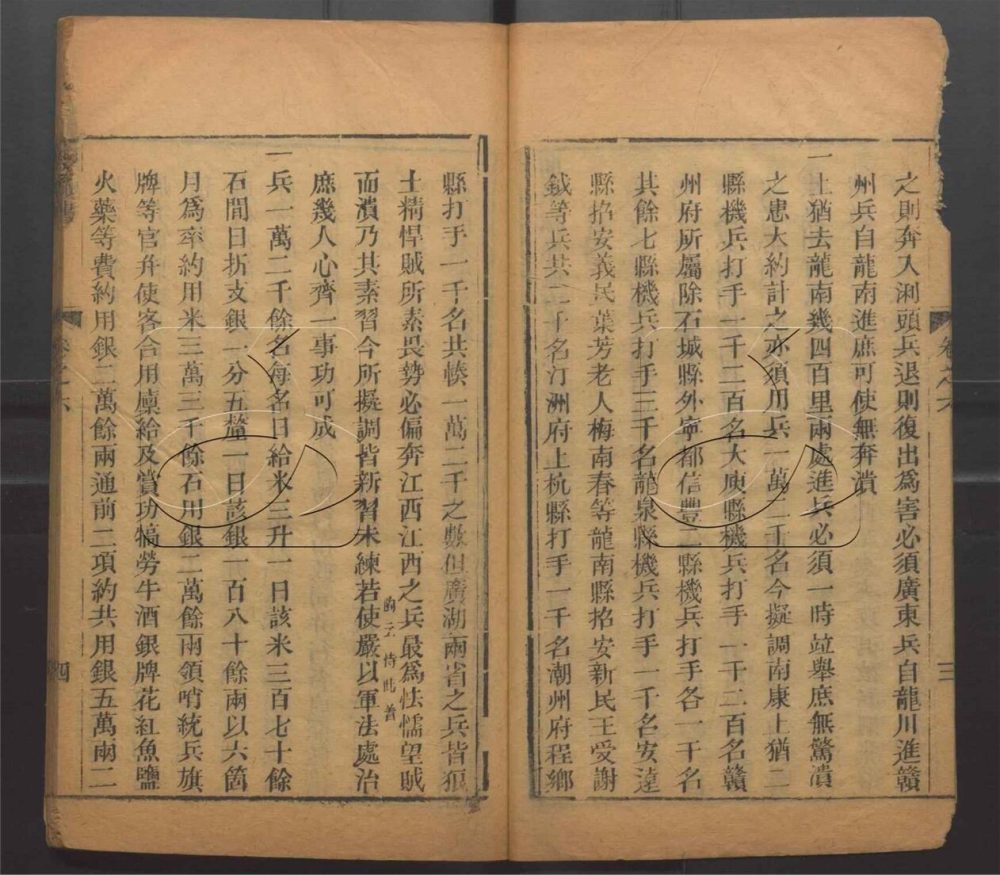 之則奔入浰頭兵退則復出爲害必須廣東兵自龍川進贛
州兵自龍南進庶可使無奔潰
一上猶去龍南幾四百里兩處進兵必須一時竝舉庶無驚潰
之患大約計之亦須用兵一萬二千名今擬調南康上猶二
縣機兵打手一千二百名大庾縣機兵打手一千二百名贛
州府所屬除石城縣外寧都信豐二縣機兵打手各一千名
其餘七縣機兵打手三千名龍泉縣機兵打手一千名安遠
縣招安義民葉芳老人梅南春等龍南縣招安新民王受謝
鉞等兵共二千名汀洲府上杭縣打手一千名潮州府程鄉
卷之六
三
縣打手一千名共輳一萬二千之數但廣湖兩省之兵皆狼
土精悍賊所素畏勢必偏奔江西江西之兵最爲怯懦望賊
而潰乃其素習今所擬調皆新習未練若使嚴以軍法處治
庶幾人心齊一事功可成
一兵一萬二千餘名每名日給米三升一日該米三百七十餘
石間日折支銀一分五釐一日該銀一百八十餘兩以六箇
月爲率約用米三萬三千餘石用銀二萬餘兩領哨統兵旗
牌等官弁使客合用廩給及賞功犒勞牛酒銀牌花紅魚鹽
火藥等費約用銀二萬餘兩通前二項約共用銀五萬兩二
卷之六
四